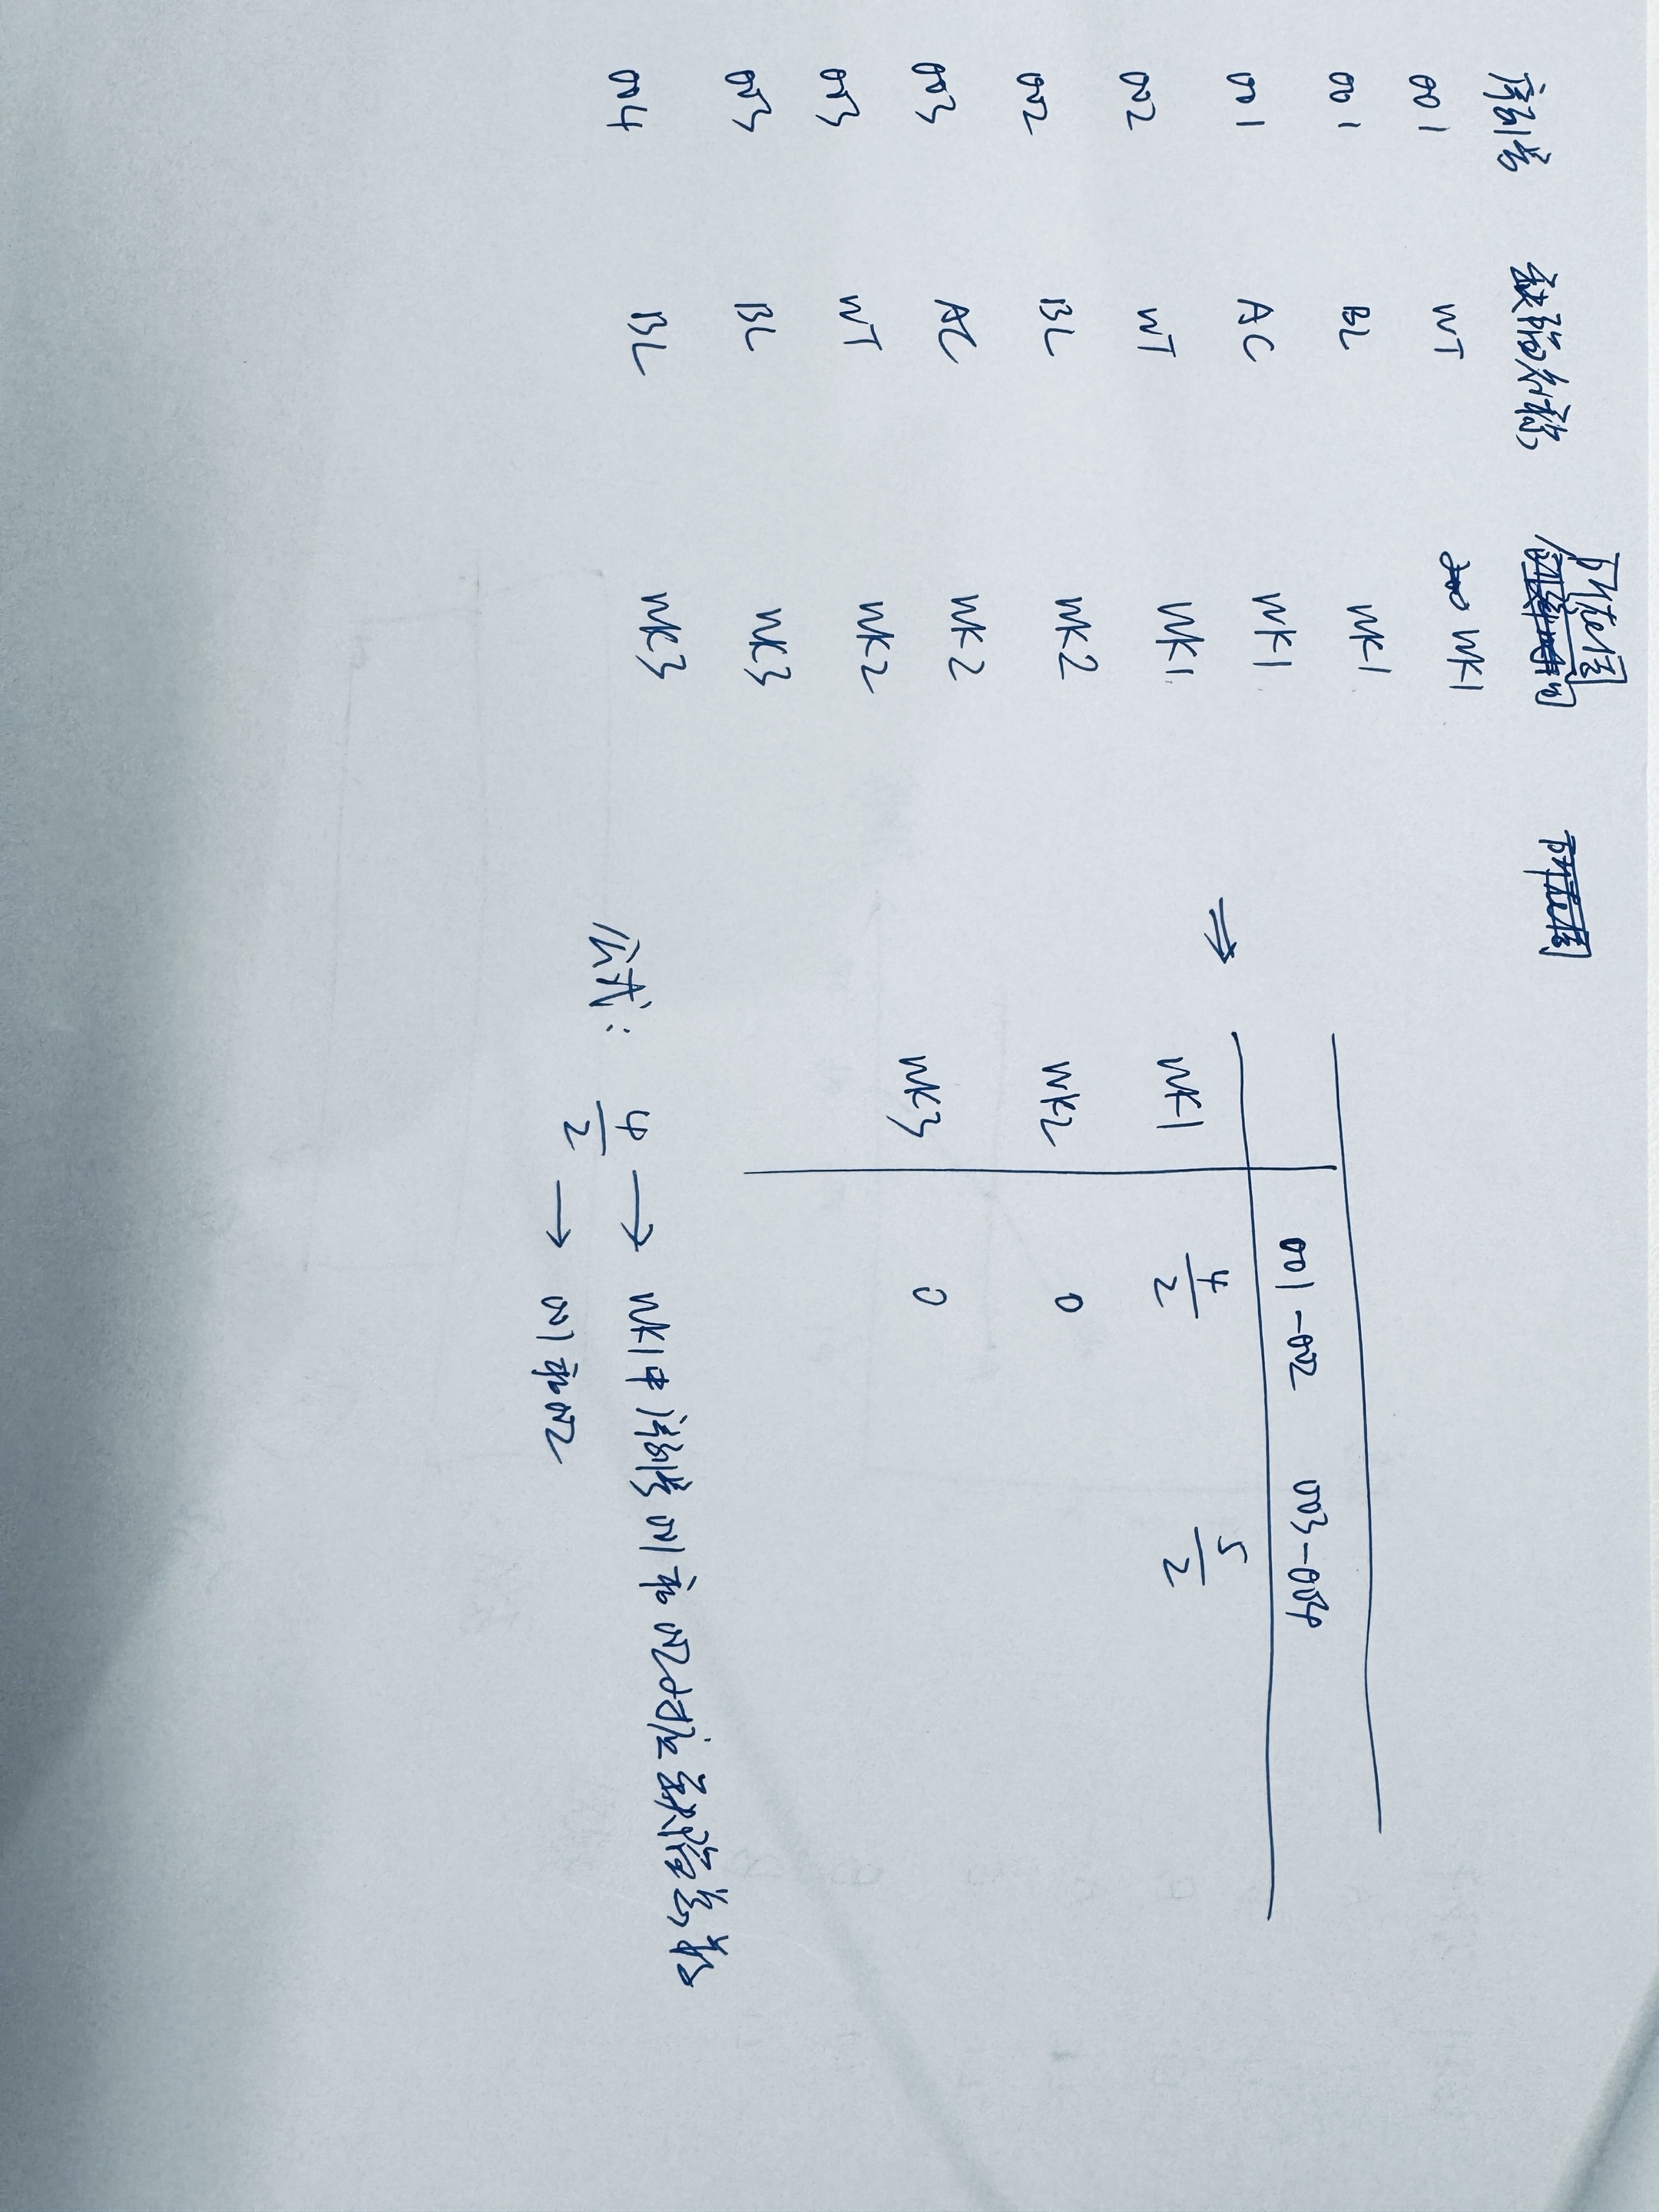 序列号 缺陷名称 所在周
001 WT WK1
001 BL WK1
001 AC WK1
002 WT WK1
002 BL WK2
003 AC WK2
003 WT WK2
003 BL WK3
004 BL WK3
⇒
001-002 003-004
WK1 4/2 5/2
WK2 0
WK3 0
公式: 4/2
4 → WK1中序列号001和002对应缺陷总和
2 → 001和002